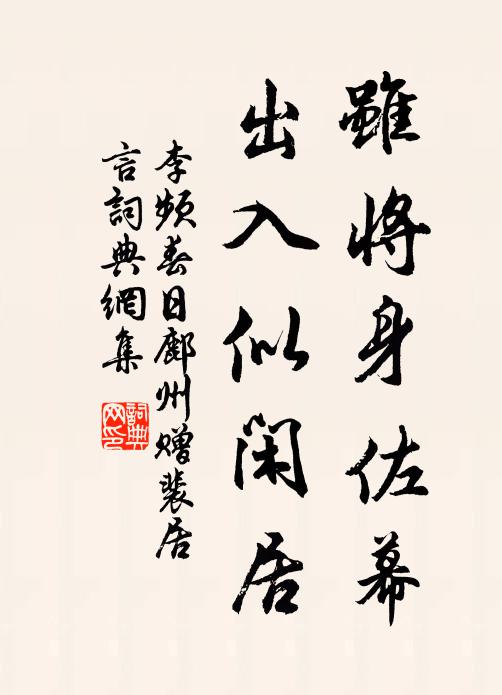 雖將身佐幕
出入似閑居
李頻春日鄜州贈裴居
言詞典網集
詞典网印